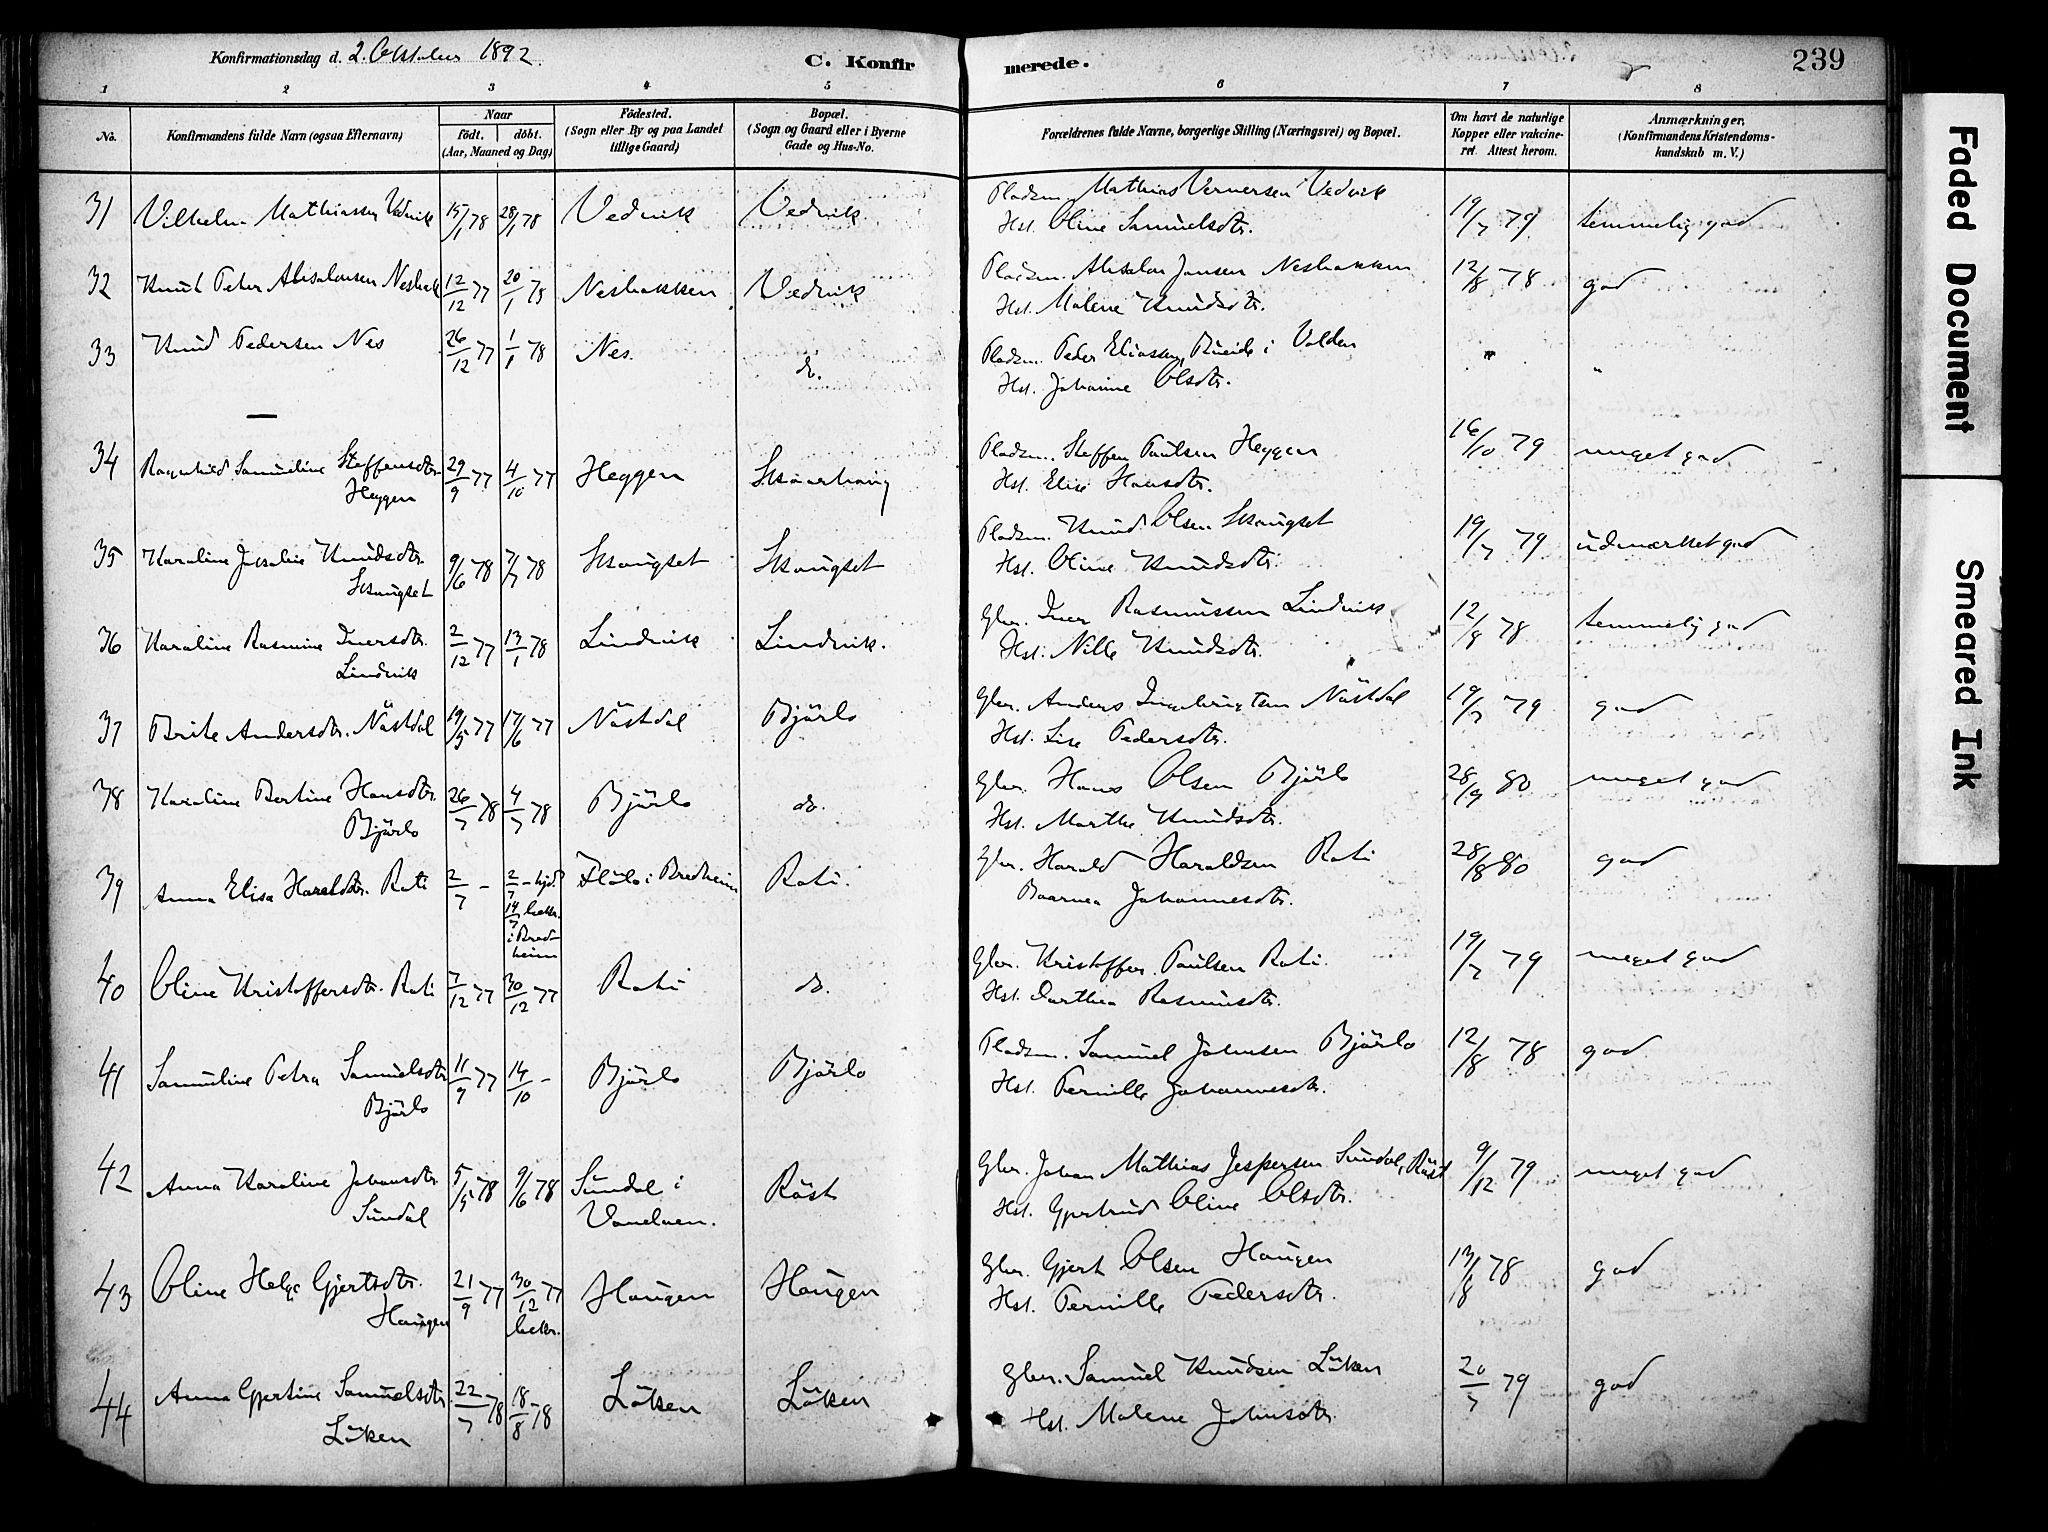 Konfirmationsdag d. 2. Oktober 1892.
C. Konfirmerede.
239
1 2 3 4 5 6 7 8
No.
Konfirmandens fulde Navn (ogsaa Efternavn)
Naar
födt, döbt.
(Aar, Maaned og Dag)
Födested.
(Sogn eller By og paa Landet
tillige Gaard)
Bopæl.
(Sogn og Gaard eller i Byerne
Gade og Hus-No.
Forældrenes fulde Navne, borgerlige Stilling (Næringsvei) og Bopæl.
Om havt de naturlige
Kopper eller vakcine-
ret. Attest herom.
Anmærkninger,
(Konfirmandens Kristendoms-
kundskab m. V.)
31 Vilhelm Mathiassen Vedvik 15/1 78 28/1 78 Vedvik Vedvik Pladsm. Mathias Vernersen Vedvik 19/7 79 temmelig god
Hst. Oline Samuelsdtr.
32 Knut Peter Absalonsen Nesbak 12/12 77 20/1 78 Nesbakken Vedvik Pladsm. Absalon Jansen Nesbakken 12/8 78 god
Hst. Malene Knudsdtr.
33 Knud Pedersen Nes 26/12 77 1/1 78 Nes. do. Pladsm. Peder Eliassen, Rueide i Volden " "
Hst. Johanne Olsdtr.
—
34 Ragnhild Samueline Steffensdtr. 29/9 77 4/10 77 Heggen Skaarhaug Pladsm. Steffen Paulsen Heggen 16/10 79 meget god
Heggen Hst. Elise Hansdtr.
35 Karoline Jakobine Knudsdtr. 9/6 78 7/7 78 Skaugset Skaugset Pladsm. Knud Olsen Skaugset 19/7 79 udmærket god
Skaugset Hst. Oline Knudsdtr.
36 Karoline Rasmine Iversdtr. 2/12 77 13/1 78 Lindvik Lindvik. Gbr. Iver Rasmussen Lindvik 12/8 78 temmelig god
Lindvik Hst. Nille Knudsdtr.
37 Brite Andersdtr. Nästdal 19/5 77 17/6 77 Nästdal Bjørlo Gbr. Anders Ingebrigtsen Nästdal 19/7 79 god
Hst. Lise Pedersdtr.
38 Karoline Bertine Hansdtr. 26/7 78 4/7 78 Bjørlo do. Gbr. Hans Olsen Bjørlo 28/9 80 meget god
Bjørlo Hst. Marthe Knudsdtr.
39 Anna Elisa Haraldsdtr. Roti 2/7 – 2/7 – hjd. Flölo i Bredheim Roti. Gbr. Harald Haraldsen Roti 28/8 80 god
14/7 bekr. Johannesdtr.
i Bred-
heim
40 Oline Kristoffersdtr. Roti 7/12 77 30/12 77 Roti do. Gbr. Kristoffer Paulsen Roti. 19/7 79 meget god
Hst. Dorthea Rasmusdtr.
41 Samueline Petra Samuelsdtr 11/9 77 14/10 – Bjørlo Bjørlo Pladsm. Samuel Johnsen Bjørlo 12/8 78 god
Bjørlo Hst. Pernille Johannesdtr.
42 Anna Karoline Johansdtr 5/5 78 9/6 78 Sundal i Röst Gbr. Johan Mathias Jespersen Sundal, Röst 9/12 79 meget god
Sundal Vanelven. Hst. Gjertrud Oline Olsdtr.
43 Oline Helge Gjertsdtr. 21/9 77 30/12 77 Haugen Haugen Gbr. Gjert Olsen Haugen 13/8 78 god
Haugen bekr. Hst. Pernille Pedersdtr.
44 Anna Gjertine Samuelsdtr. 22/7 78 18/8 78 Löken Löken Gbr. Samuel Knudsen Löken 20/7 79 god
Löken Hst. Malene Johnsdtr.
Faded Document
Smeared Ink